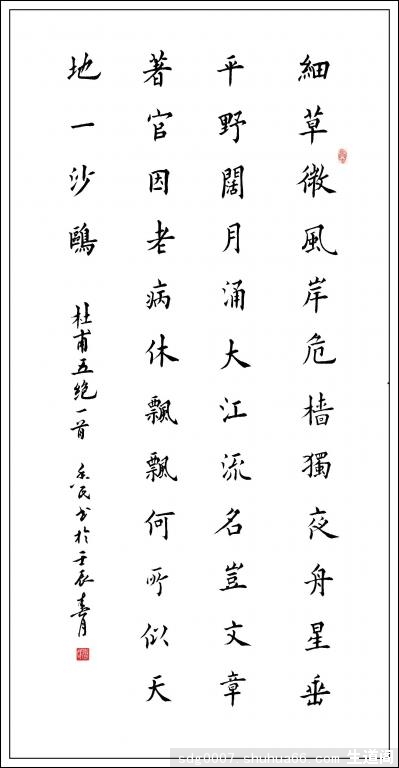 細草微風岸危檣獨夜舟星垂
平野闊月涌大江流名豈文章
著官因老病休飄飄何所似天
地一沙鷗
杜甫五絕一首 民书於壬辰春月
cdg0007.shuhua66.com 生道阁